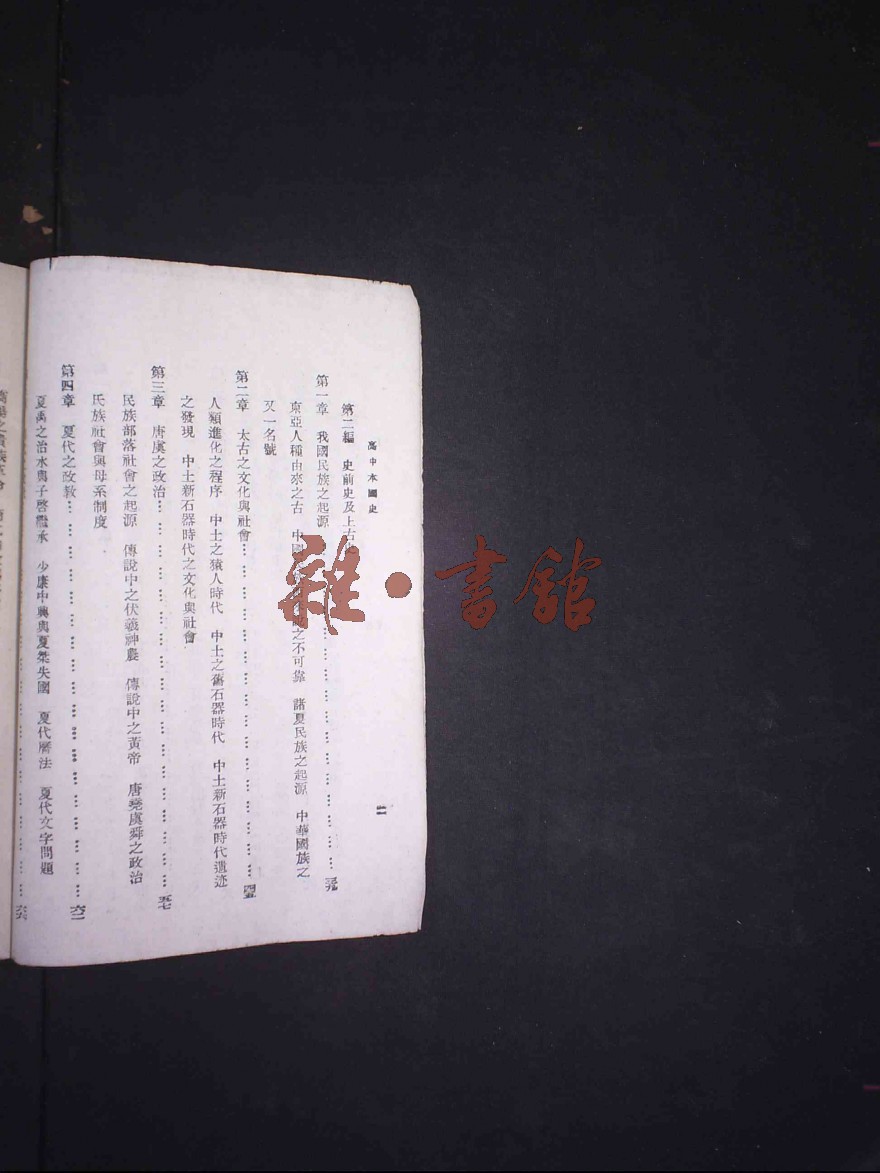 高中本國史
二
第二編　史前史及上古
第一章　我國民族之起源 … 三九
東亞人種由來之古　中國 之不可靠　諸夏民族之起源　中華國族之
又一名號
第二章　太古之文化與社會 … 四五
人類進化之程序　中土之猿人時代　中土之舊石器時代　中土新石器時代遺迹
之發現　中土新石器時代之文化與社會
第三章　唐虞之政治 … 五七
民族部落社會之起源　傳說中之伏羲神農　傳說中之黃帝　唐堯虞舜之政治
氏族社會與母系制度
第四章　夏代之政教 … 六二
夏禹之治水與子啓繼承　少康中興與夏桀失國　夏代曆法　夏代文字問題
… 六六
雜·書館